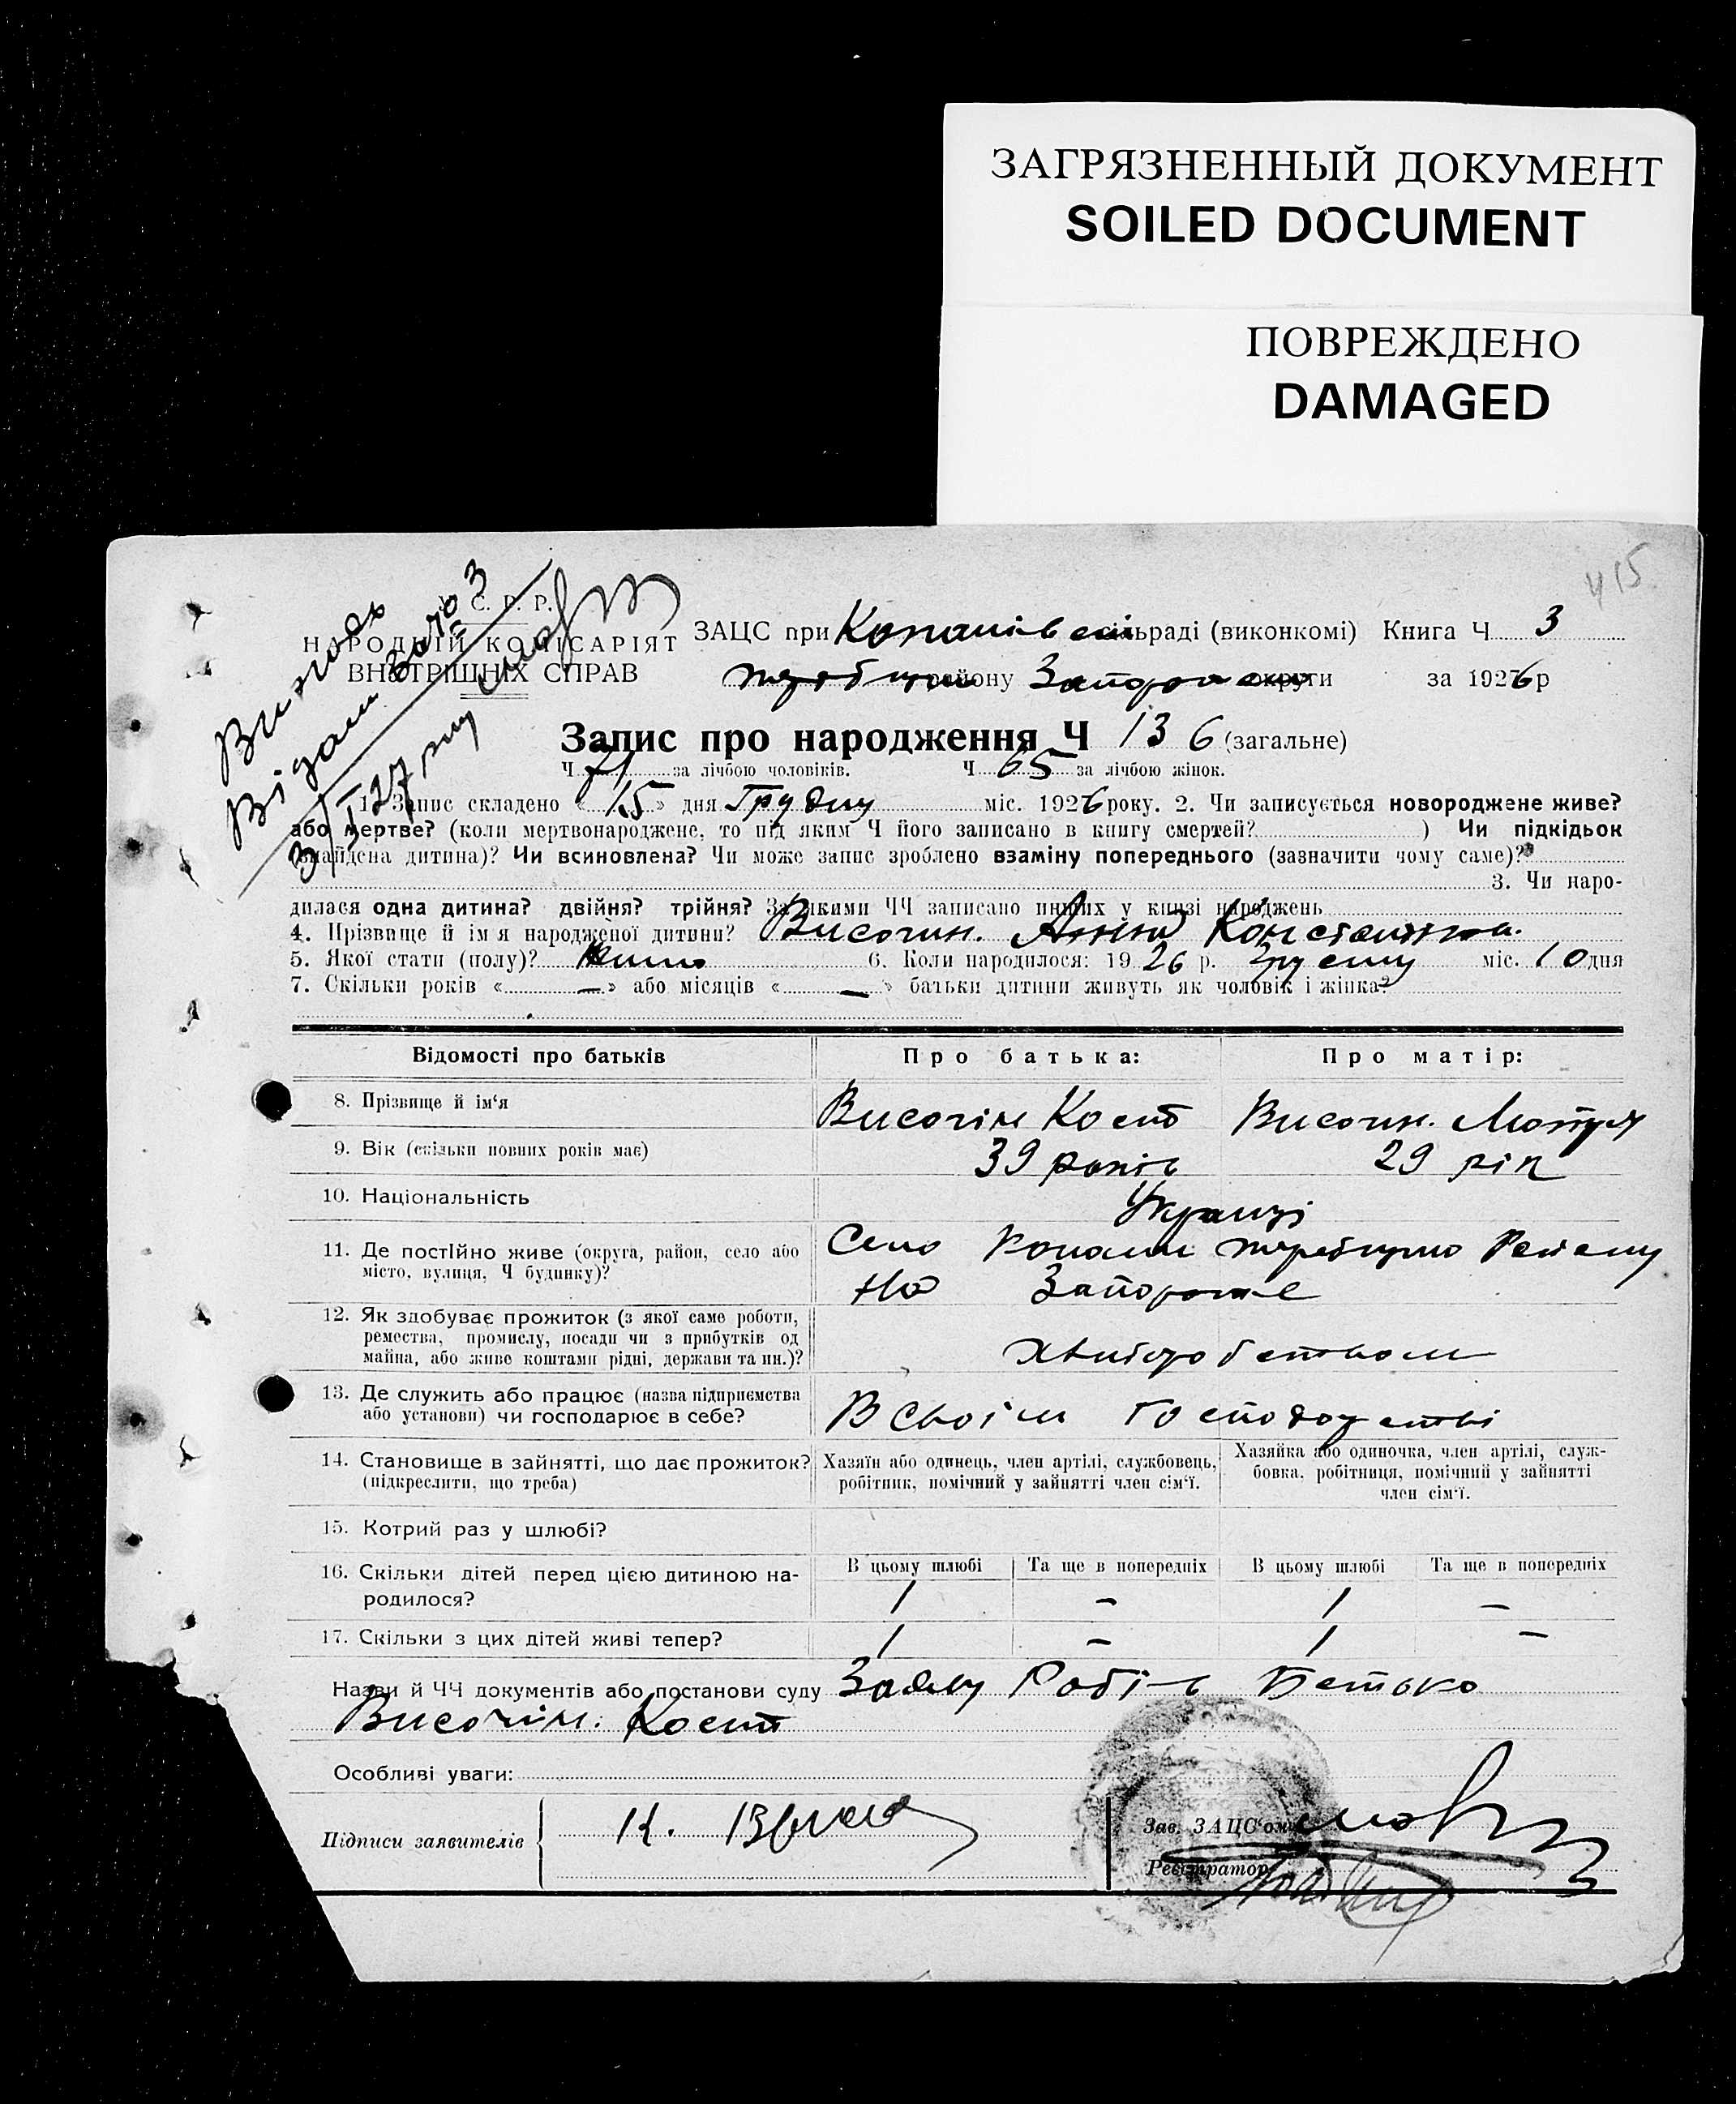 ЗАГРЯЗНЕННЫЙ ДОКУМЕНТ
SOILED DOCUMENT
ПОВРЕЖДЕНО
DAMAGED
415
У. С. Р. Р.
НАРОДНІЙ КОМІСАРІЯТ
ВНУТРІШНІХ СПРАВ
ЗАЦС при Копанів сільраді (виконкомі) Книга Ч 3
району округи за 1926 р
Запис про народження Ч 136 (загальне)
Ч 71 за лічбою чоловіків. Ч 65 за лічбою жінок.
1. Запис складено « 15 » дня Грудню міс. 1926 року. 2. Чи записується новороджене живе?
або мертве? (коли мертвонароджене, то під яким Ч його записано в книгу смертей? ) Чи підкідьок
(знайдена дитина)? Чи всиновлена? Чи може запис зроблено взаміну попереднього (зазначити чому саме)?
3. Чи наро-
дилася одна дитина? двійня? трійня? За якими ЧЧ записано инших у книзі народжень
4. Прізвище й ім'я народженої дитини? Височин. Анна
5. Якої стати (полу)? 6. Коли народилося: 19 26 р. міс. 10 дня
7. Скільки років « — » або місяців « — » батьки дитини живуть як чоловік і жінка?
Відомості про батьків Про батька: Про матір:
8. Прізвище й ім'я Височін Кост Височин. Мотря
9. Вік (скільки повних років має) 39 років 29 рік
10. Національність Українці
11. Де постійно живе (округа, район, село або Село Копани
місто, вулиця, Ч будинку)? На Запорожже
12. Як здобуває прожиток (з якої саме роботи,
ремества, промислу, посади чи з прибутків од
майна, або живе коштами рідні, держави та ин.)? хліборобством
13. Де служить або працює (назва підприємства
або установи) чи господарює в себе? В своїм господарстві
14. Становище в зайнятті, що дає прожиток? Хазяїн або одинець, член артілі, службовець, Хазяйка або одиночка, член артілі, служ-
(підкреслити, що треба) робітник, помічний у зайнятті член сім'ї. бовка, робітниця, помічний у зайнятті
член сім'ї.
15. Котрий раз у шлюбі?
16. Скільки дітей перед цією дитиною на- В цьому шлюбі Та ще в попередніх В цьому шлюбі Та ще в попередніх
родилося? 1 – 1 –
17. Скільки з цих дітей живі тепер? 1 – 1 –
Назви й ЧЧ документів або постанови суду Заяву Робів Батько
Височін. Кост
Особливі уваги:
Підписи заявителів К.
Зав. ЗАЦС'ом
Реєстратор